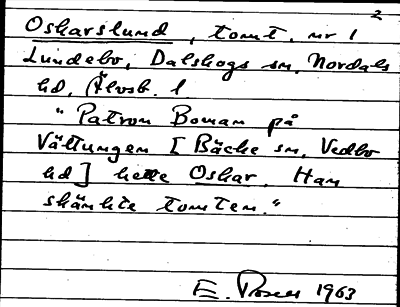 2
Oskarslund, tomt. nr 1
Lundebo, Dalskogs sn, Nordals
hd, Älvsb. l
"Patron Boman på
Vättungen [Bäcke sn, Vedbo
hd] hette Oskar. Han
skänkte tomten."
E. 1963